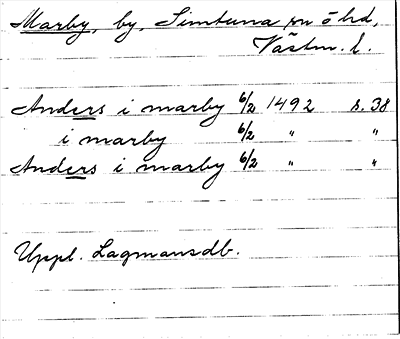 Marby, by, Simtuna sn o hd,
Västm. l.
Anders i marby 6/2 1492 s. 38
i marby 6/2 " "
Anders i marby 6/2 " "
Uppl. Lagmansdb.